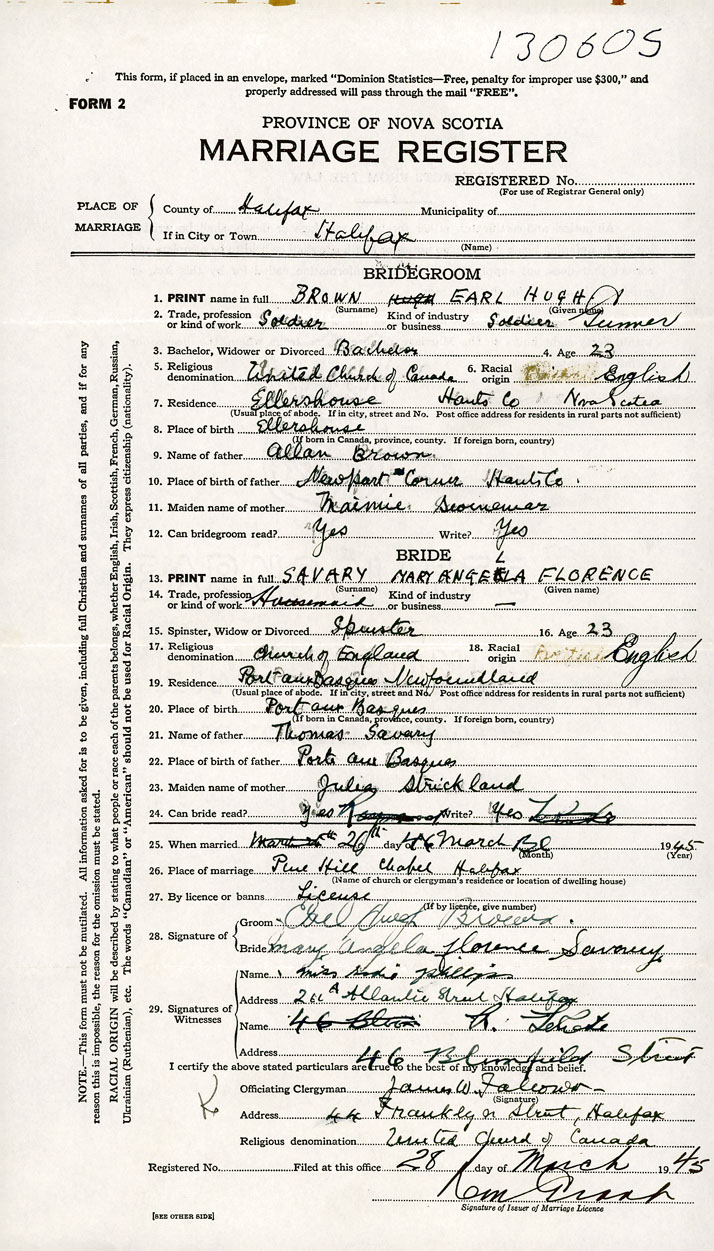 130605
This form, if placed in an envelope, marked "Dominion Statistics—Free, penalty for improper use $300," and
properly addressed will pass through the mail "FREE".
FORM 2
PROVINCE OF NOVA SCOTIA
MARRIAGE REGISTER
REGISTERED No.
(For use of Registrar General only)
PLACE OF MARRIAGE
County of Halifax Municipality of
If in City or Town Halifax
(Name)
BRIDEGROOM
1. PRINT name in full BROWN EARL HUGH
(Surname) (Given name)
2. Trade, profession or kind of work Soldier Kind of industry or business Soldier Gunner
3. Bachelor, Widower or Divorced Bachelor 4. Age 23
5. Religious denomination United Church of Canada 6. Racial origin English
7. Residence Ellershouse Hants Co Nova Scotia
(Usual place of abode. If in city, street and No. Post office address for residents in rural parts not sufficient)
8. Place of birth Ellershouse
(If born in Canada, province, county. If foreign born, country)
9. Name of father Allan Brown
10. Place of birth of father Newport Corner Hants Co.
11. Maiden name of mother Maimie
12. Can bridegroom read? Yes Write? Yes
BRIDE
13. PRINT name in full SAVARY MARY ANGELA FLORENCE
(Surname) (Given name)
14. Trade, profession or kind of work Housemaid Kind of industry or business —
15. Spinster, Widow or Divorced Spinster 16. Age 23
17. Religious denomination Church of England 18. Racial origin English
19. Residence Port aux Basques Newfoundland
(Usual place of abode. If in city, street and No. Post office address for residents in rural parts not sufficient)
20. Place of birth Port aux Basques
(If born in Canada, province, county. If foreign born, country)
21. Name of father Thomas Savary
22. Place of birth of father Porte aux Basques
23. Maiden name of mother Julia Strickland
24. Can bride read? Yes Write? Yes
25. When married 26th day of March 1945
(Month) (Year)
26. Place of marriage Pine Hill Chapel Halifax
(Name of church or clergyman's residence or location of dwelling house)
27. By licence or banns License
(If by licence, give number)
28. Signature of
Groom Earl Hugh Brown.
Bride Mary Angela Florence Savary
29. Signatures of Witnesses
Name Miss Sadie Phillips
Address Atlantic Street Halifax
Name R.
Address 46 Street
I certify the above stated particulars are true to the best of my knowledge and belief.
Officiating Clergyman James W. Falconer
(Signature)
Address 44 Franklyn Street, Halifax
Religious denomination United Church of Canada
Registered No. Filed at this office 28 day of March 1945
Signature of Issuer of Marriage Licence
[SEE OTHER SIDE]
NOTE.—This form must not be mutilated. All information asked for is to be given, including full Christian and surnames of all parties, and if for any
reason this is impossible, the reason for the omission must be stated.
RACIAL ORIGIN will be described by stating to what people or race each of the parents belongs, whether English, Irish, Scottish, French, German, Russian,
Ukrainian (Ruthenian), etc. The words "Canadian" or "American" should not be used for Racial Origin. They express citizenship (nationality).